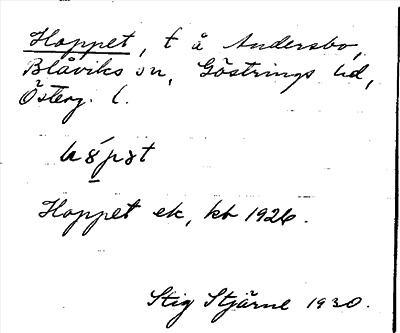 Hoppet, t å Andersbo,
Blåviks sn, Göstrings hd,
Österg. l.
Hoppet ek, kb 1926.
Stig Stjärne 1930.